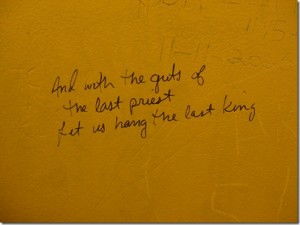 And with the guts of
the last priest
Let us hang the last king